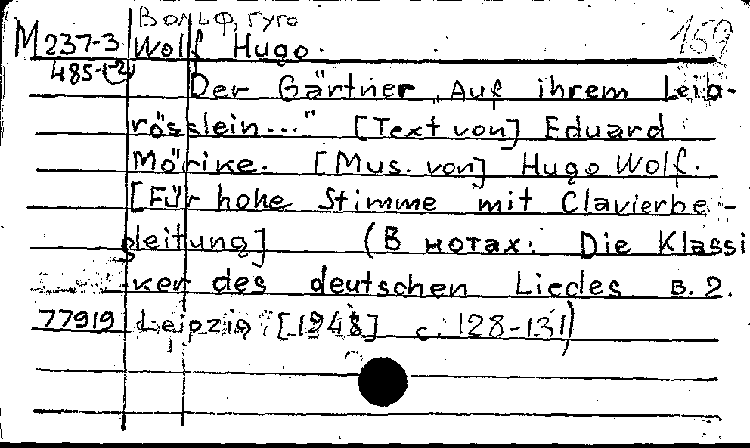 Вольф, Гуго
159
М 237-3 Wolf Hugo.
485-(2)
Der Gärtner „Auf ihrem Leib-
rösslein..." [Text von] Eduard
Mörike. [Mus. von] Hugo Wolf.
[Für hohe Stimme mit Clavierbe-
gleitung] (В нотах: Die Klassi
ker des deutschen Liedes B. 2.
77919 Leipzig [1948] с. 128-131)